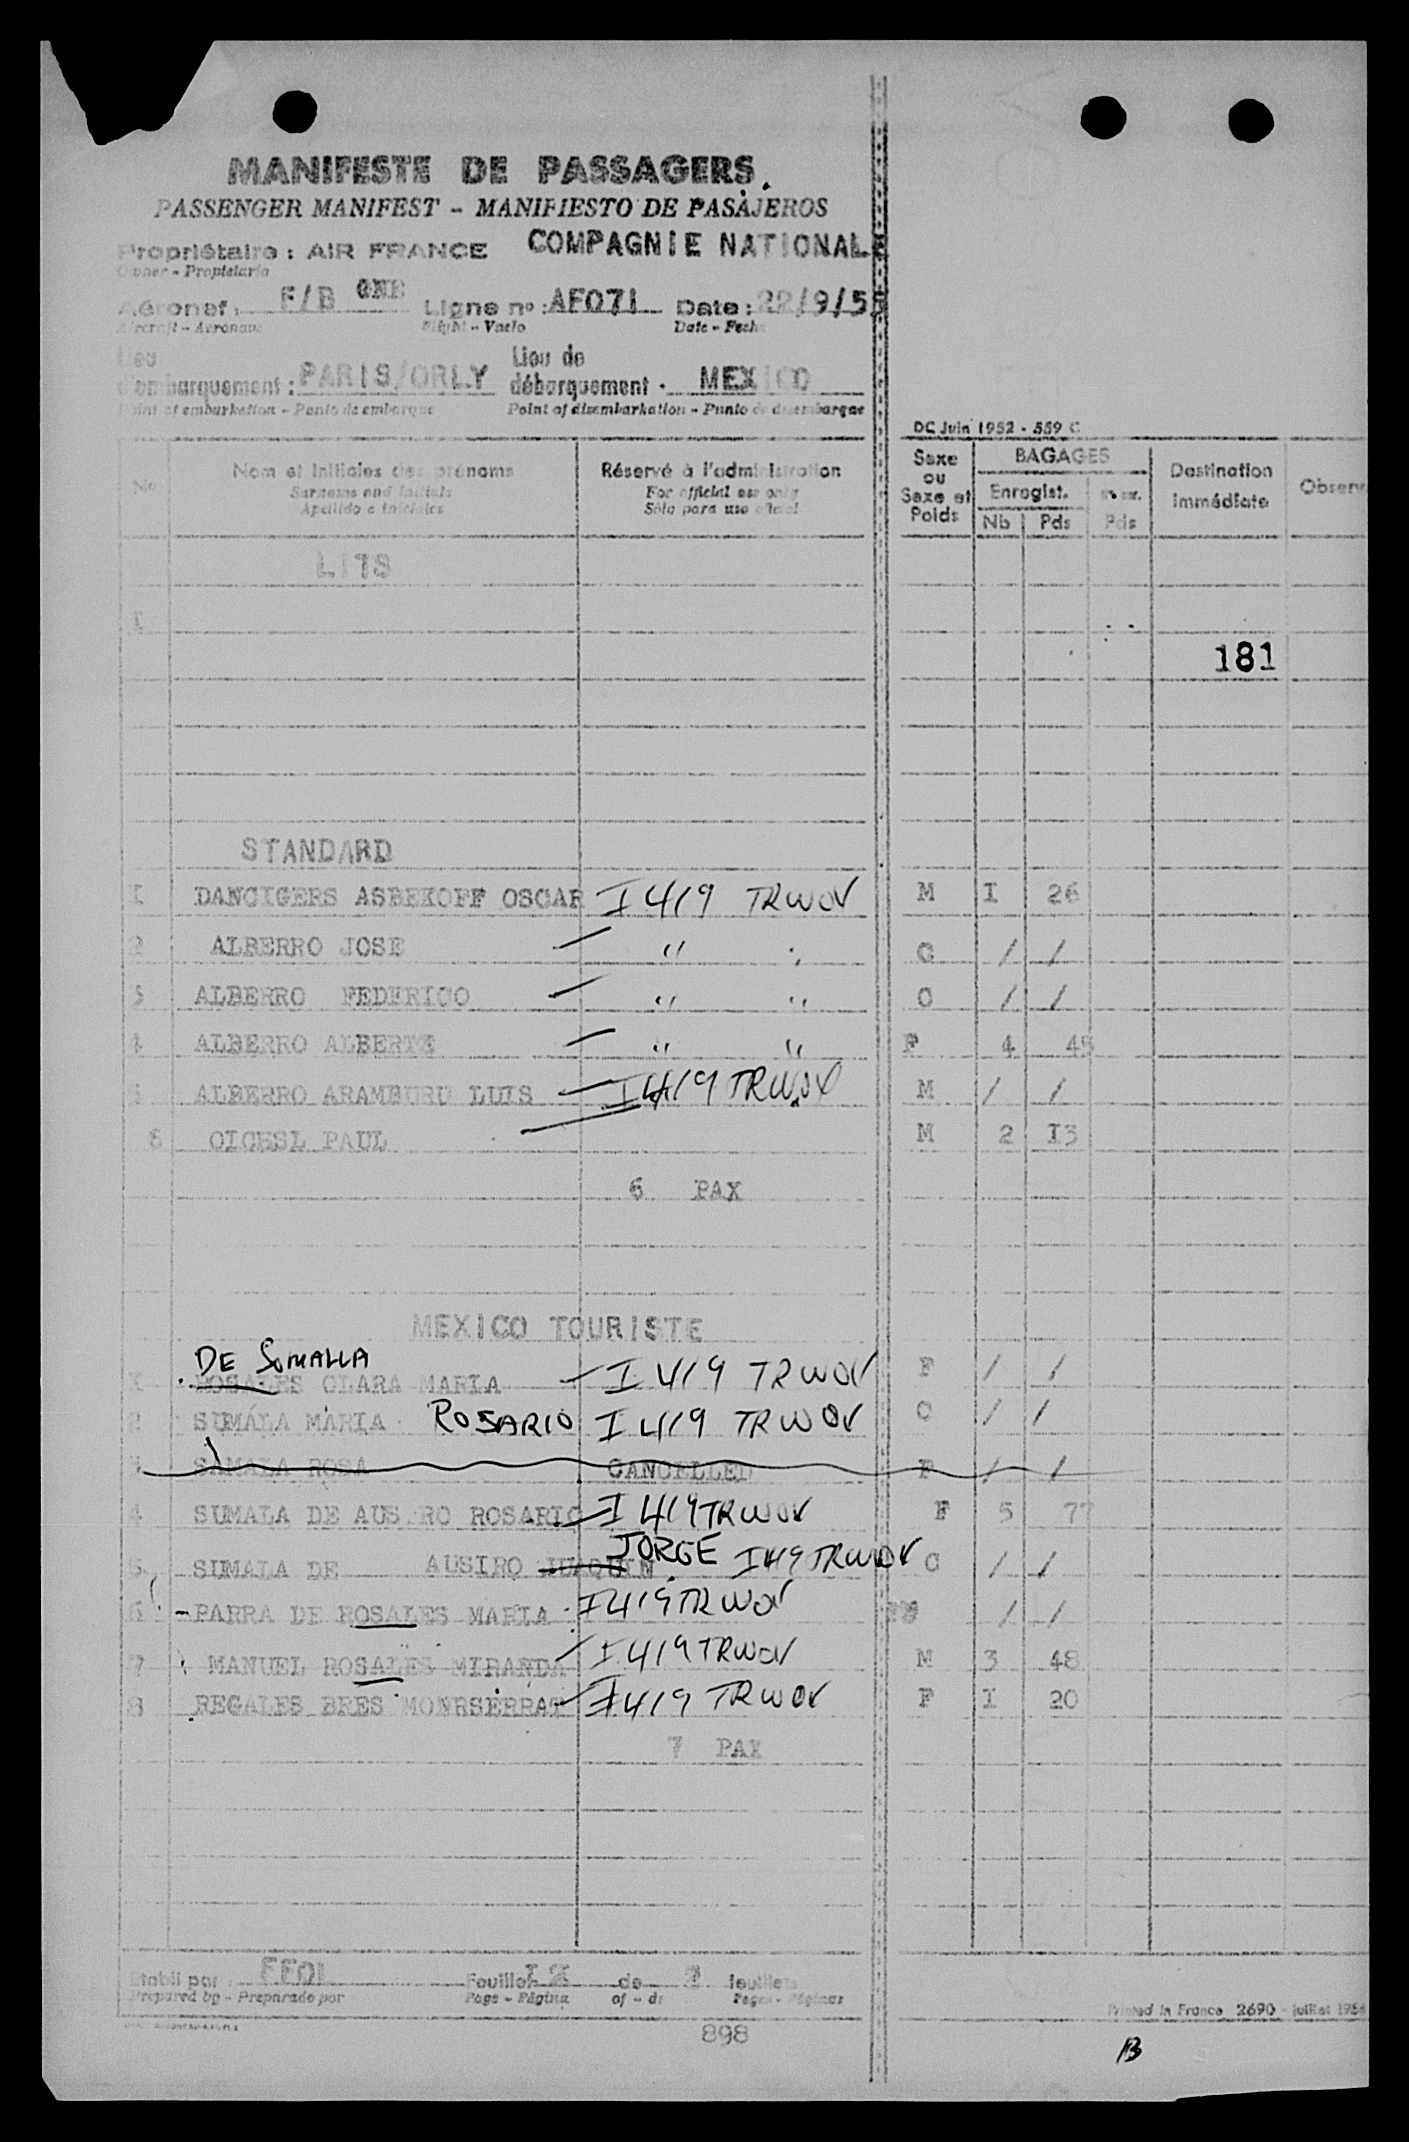 MANIFESTE DE PASSAGERS.
PASSENGER MANIFEST - MANIFIESTO DE PASAJEROS
Propriétaire : AIR FRANCE COMPAGNIE NATIONALE
Owner - Propietario
Aéronef : F/B Ligne nº : AF071 Date : 22/9/55
Aircraft - Aeronave Flight - Vuelo Date - Fecha
Lieu d'embarquement : PARIS/ORLY Lieu de débarquement : MEXICO
Point of embarkation - Punto de embarque Point of disembarkation - Punto de desembarque
DC Juin 1952 - 559 C
No Nom et initiales des prénoms Réservé à l'administration Sexe ou Sexe et Poids BAGAGES Destination immédiate Observ
Surname and initials For official use only Enregist.
Apellido e iniciales Sólo para uso oficial Nb Pds Pds
LITS
I
181
STANDARD
I DANCIGERS ASBEKOFF OSCAR I 419 TRWOV M I 26
2 ALBERRO JOSE " " C / /
3 ALBERRO FEDERICO " " C / /
4 ALBERRO ALBERTE " " F 4 45
5 ALBERRO ARAMBURU LUIS I 419 TRWOV M / /
6 OICHSL PAUL M 2 I3
6 PAX
MEXICO TOURISTE
DE SOMALLA
I ROSALES CLARA MARIA I 419 TRWOV F / /
2 SUMALA MARIA ROSARIO I 419 TRWOV C / /
3 SAMALA ROSA CANCELLED F / /
4 SUMALA DE AUS RO ROSARIO I 419 TRWOV F 5 77
JORGE
5 SUMALA DE AUSIRO JUAQUIN I 419 TRWOV C / /
6 -PARRA DE ROSALES MARIA I 419 TRWOV / /
7 MANUEL ROSALES MIRANDA I 419 TRWOV M 3 48
8 REGALES BRES MONRSERRAT I 419 TRWOV F I 20
7 PAX
Etabli par : FFOI Feuillet de feuillets
Prepared by - Preparado por Page - Página of - de Pages - Páginas
Printed in France 2690 - juillet 195
898
B